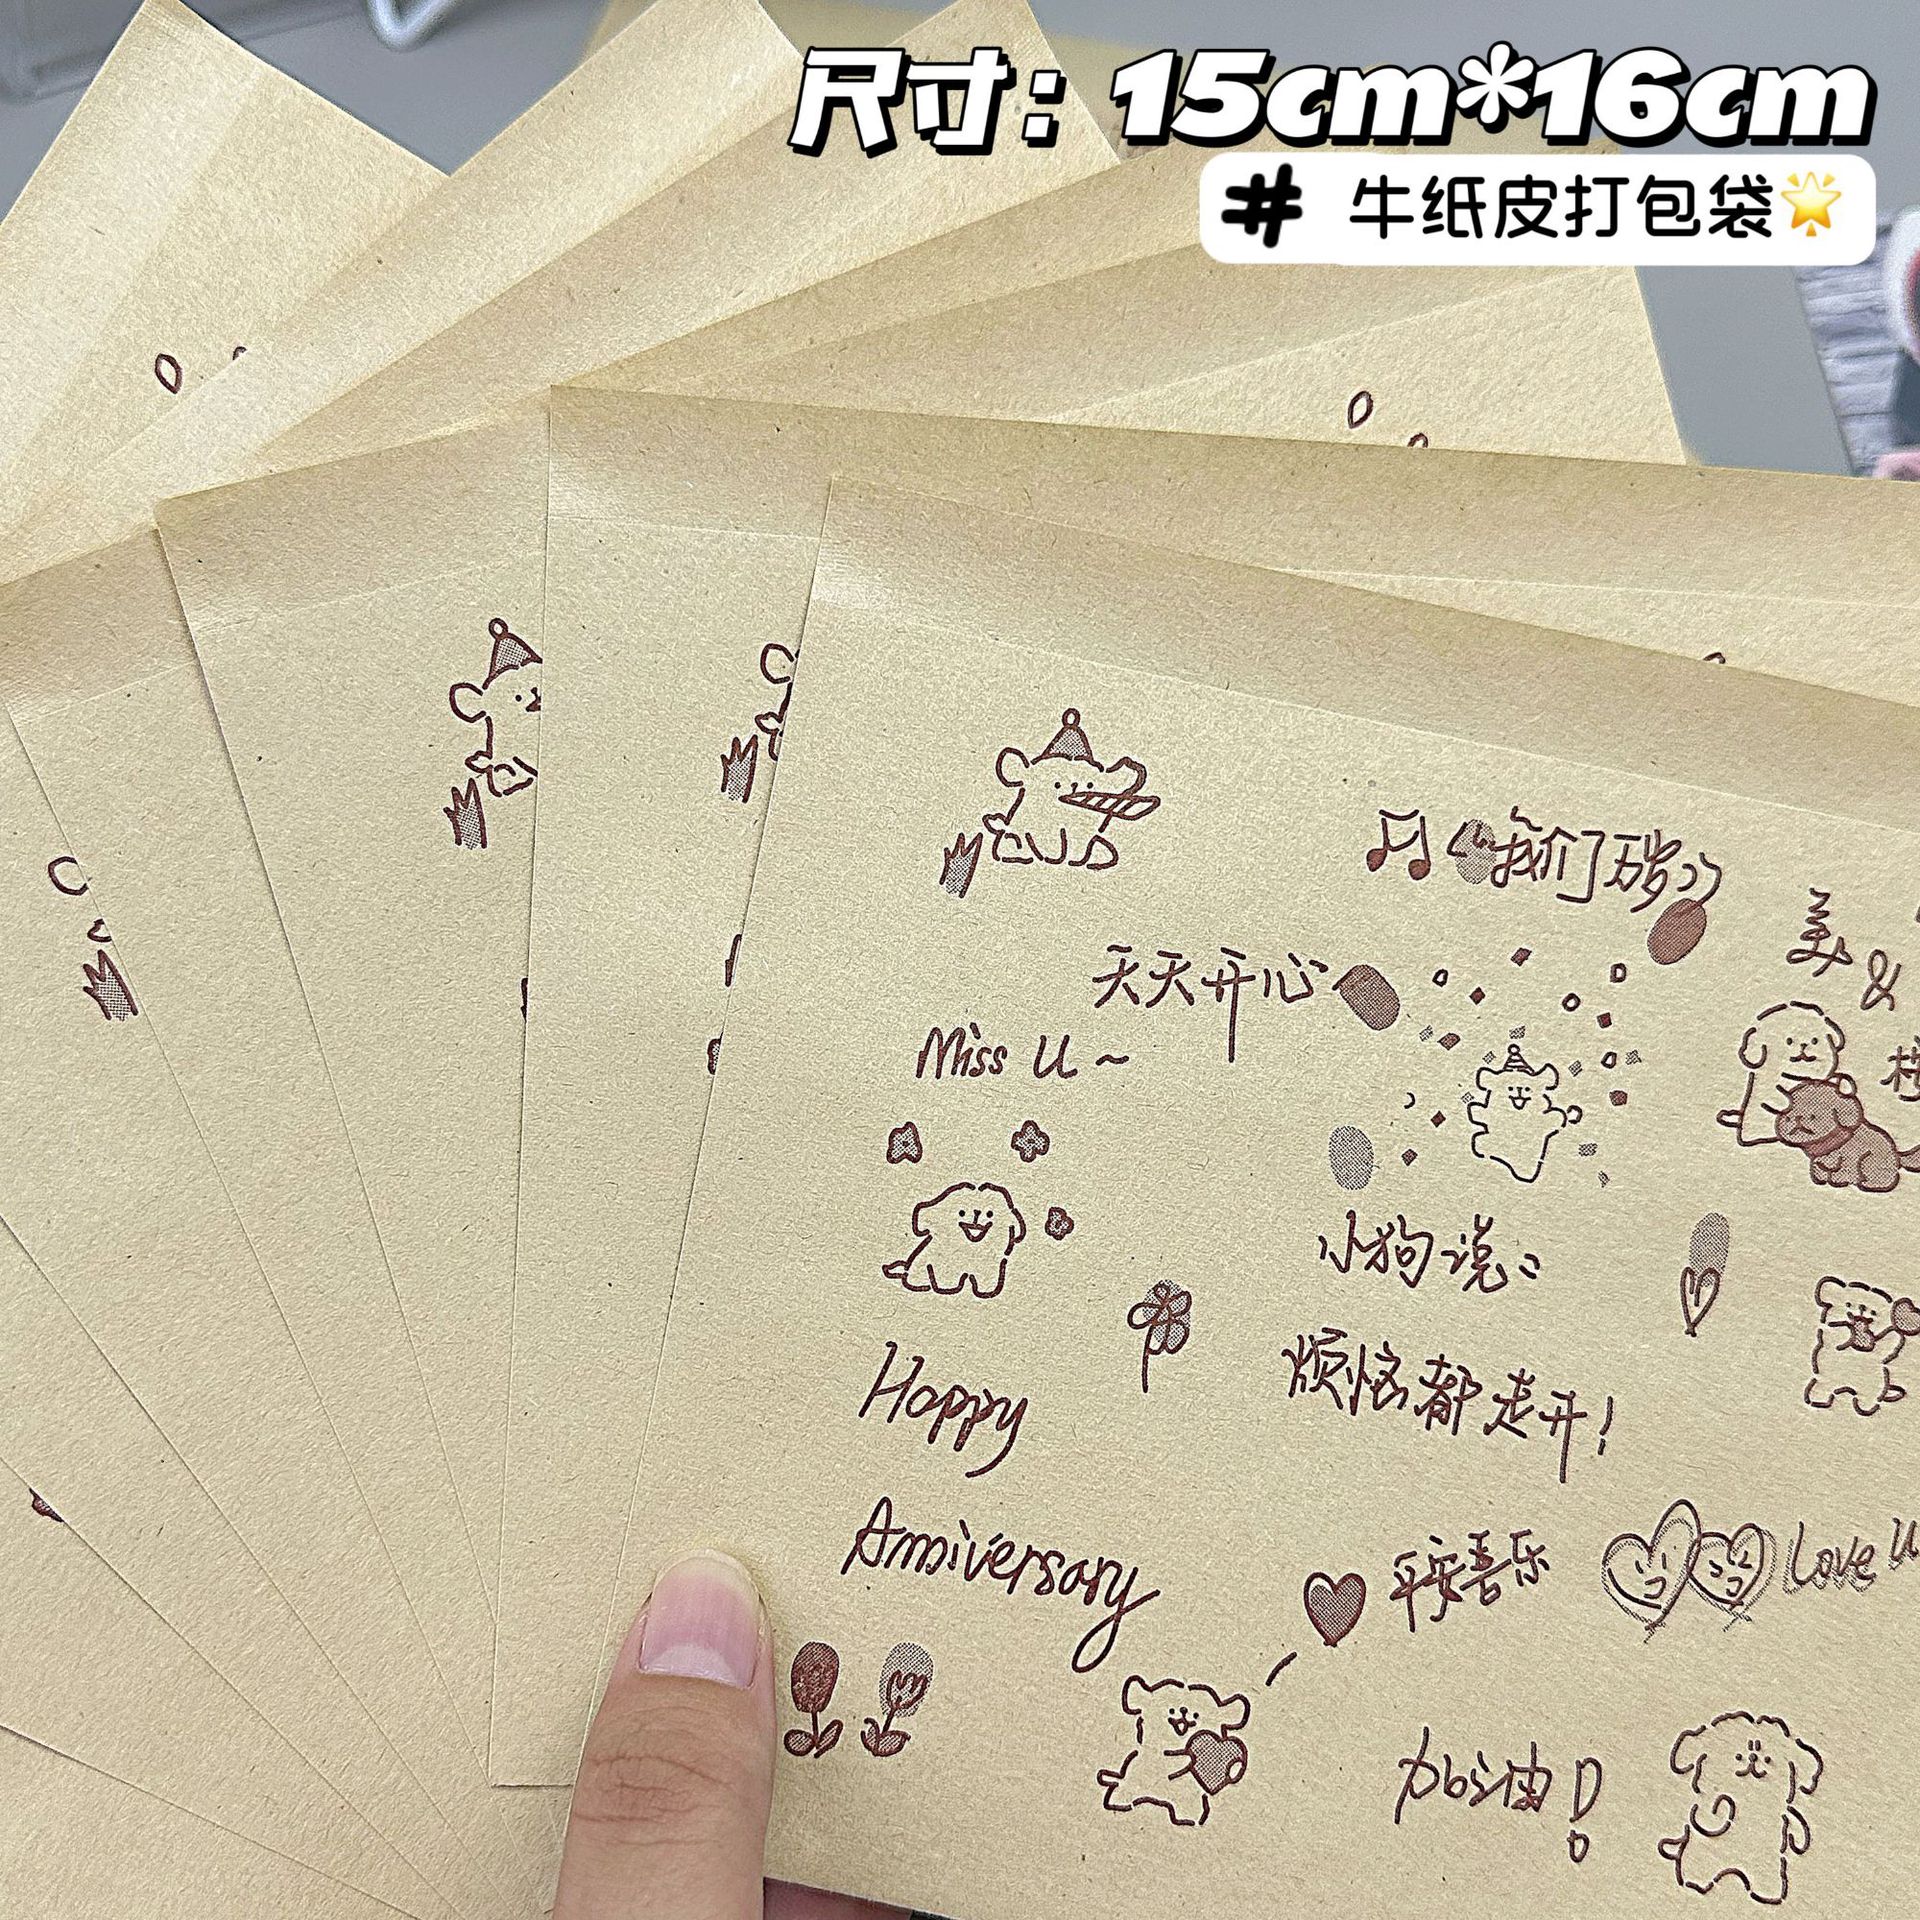 尺寸：15cm*16cm
# 牛纸皮打包袋
我们万岁
美
&
天天开心
Miss U ~
小狗说：
烦恼都走开！
Happy
Anniversary
平安喜乐
Love U
加油！